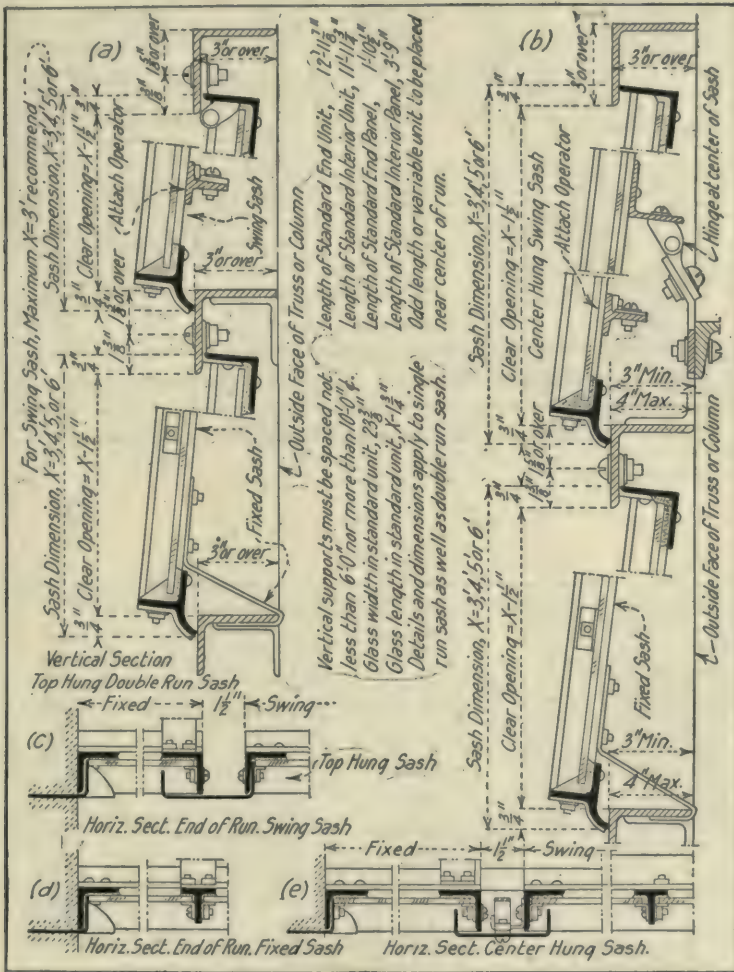 (a)
3" or over
1 5/8" or over
1 1/8"
3/4"
For Swing Sash, Maximum X=3' recommend
Sash Dimension, X=3,'4,'5,'or 6'
Clear Opening = X-1 1/2"
Attach Operator
Swing Sash
3" or over
3/4"
1 1/8" or over
1 3/8"
3/4"
Sash Dimension, X=3,'4,'5,'or 6'
Clear Opening = X-1 1/2"
Fixed Sash
3" or over
3/4"
Outside Face of Truss or Column
Vertical Section
Top Hung Double Run Sash
Length of Standard End Unit, 12'-11 7/8"
Length of Standard Interior Unit, 11'-11 3/4"
Length of Standard End Panel, 1'-10 5/8"
Length of Standard Interior Panel, 3'-9"
Odd length or variable unit to be placed
near center of run.
Vertical supports must be spaced not
less than 6'-0" nor more than 10'-0" ¢.
Glass width in standard unit, 23 3/8"
Glass length in standard unit, X-1 3/4"
Details and dimensions apply to single
run sash as well as double run sash.
(b)
3" or over
3" or over
3/4"
Sash Dimension, X=3,'4,'5,'or 6'
Clear Opening = X-1 1/2"
Center Hung Swing Sash
Attach Operator
Hinge at center of Sash
3" Min.
4" Max.
3/4"
1 1/8" or over
1 3/8"
3/4"
Sash Dimension, X=3,'4,'5,'or 6'
Clear Opening = X-1 1/2"
Fixed Sash
3" Min.
4" Max.
3/4"
Outside Face of Truss or Column
(c)
Fixed
1 1/2"
Swing
Top Hung Sash
Horiz. Sect. End of Run. Swing Sash
(d)
Horiz. Sect. End of Run. Fixed Sash
(e)
Fixed
1 1/2"
Swing
Horiz. Sect. Center Hung Sash.